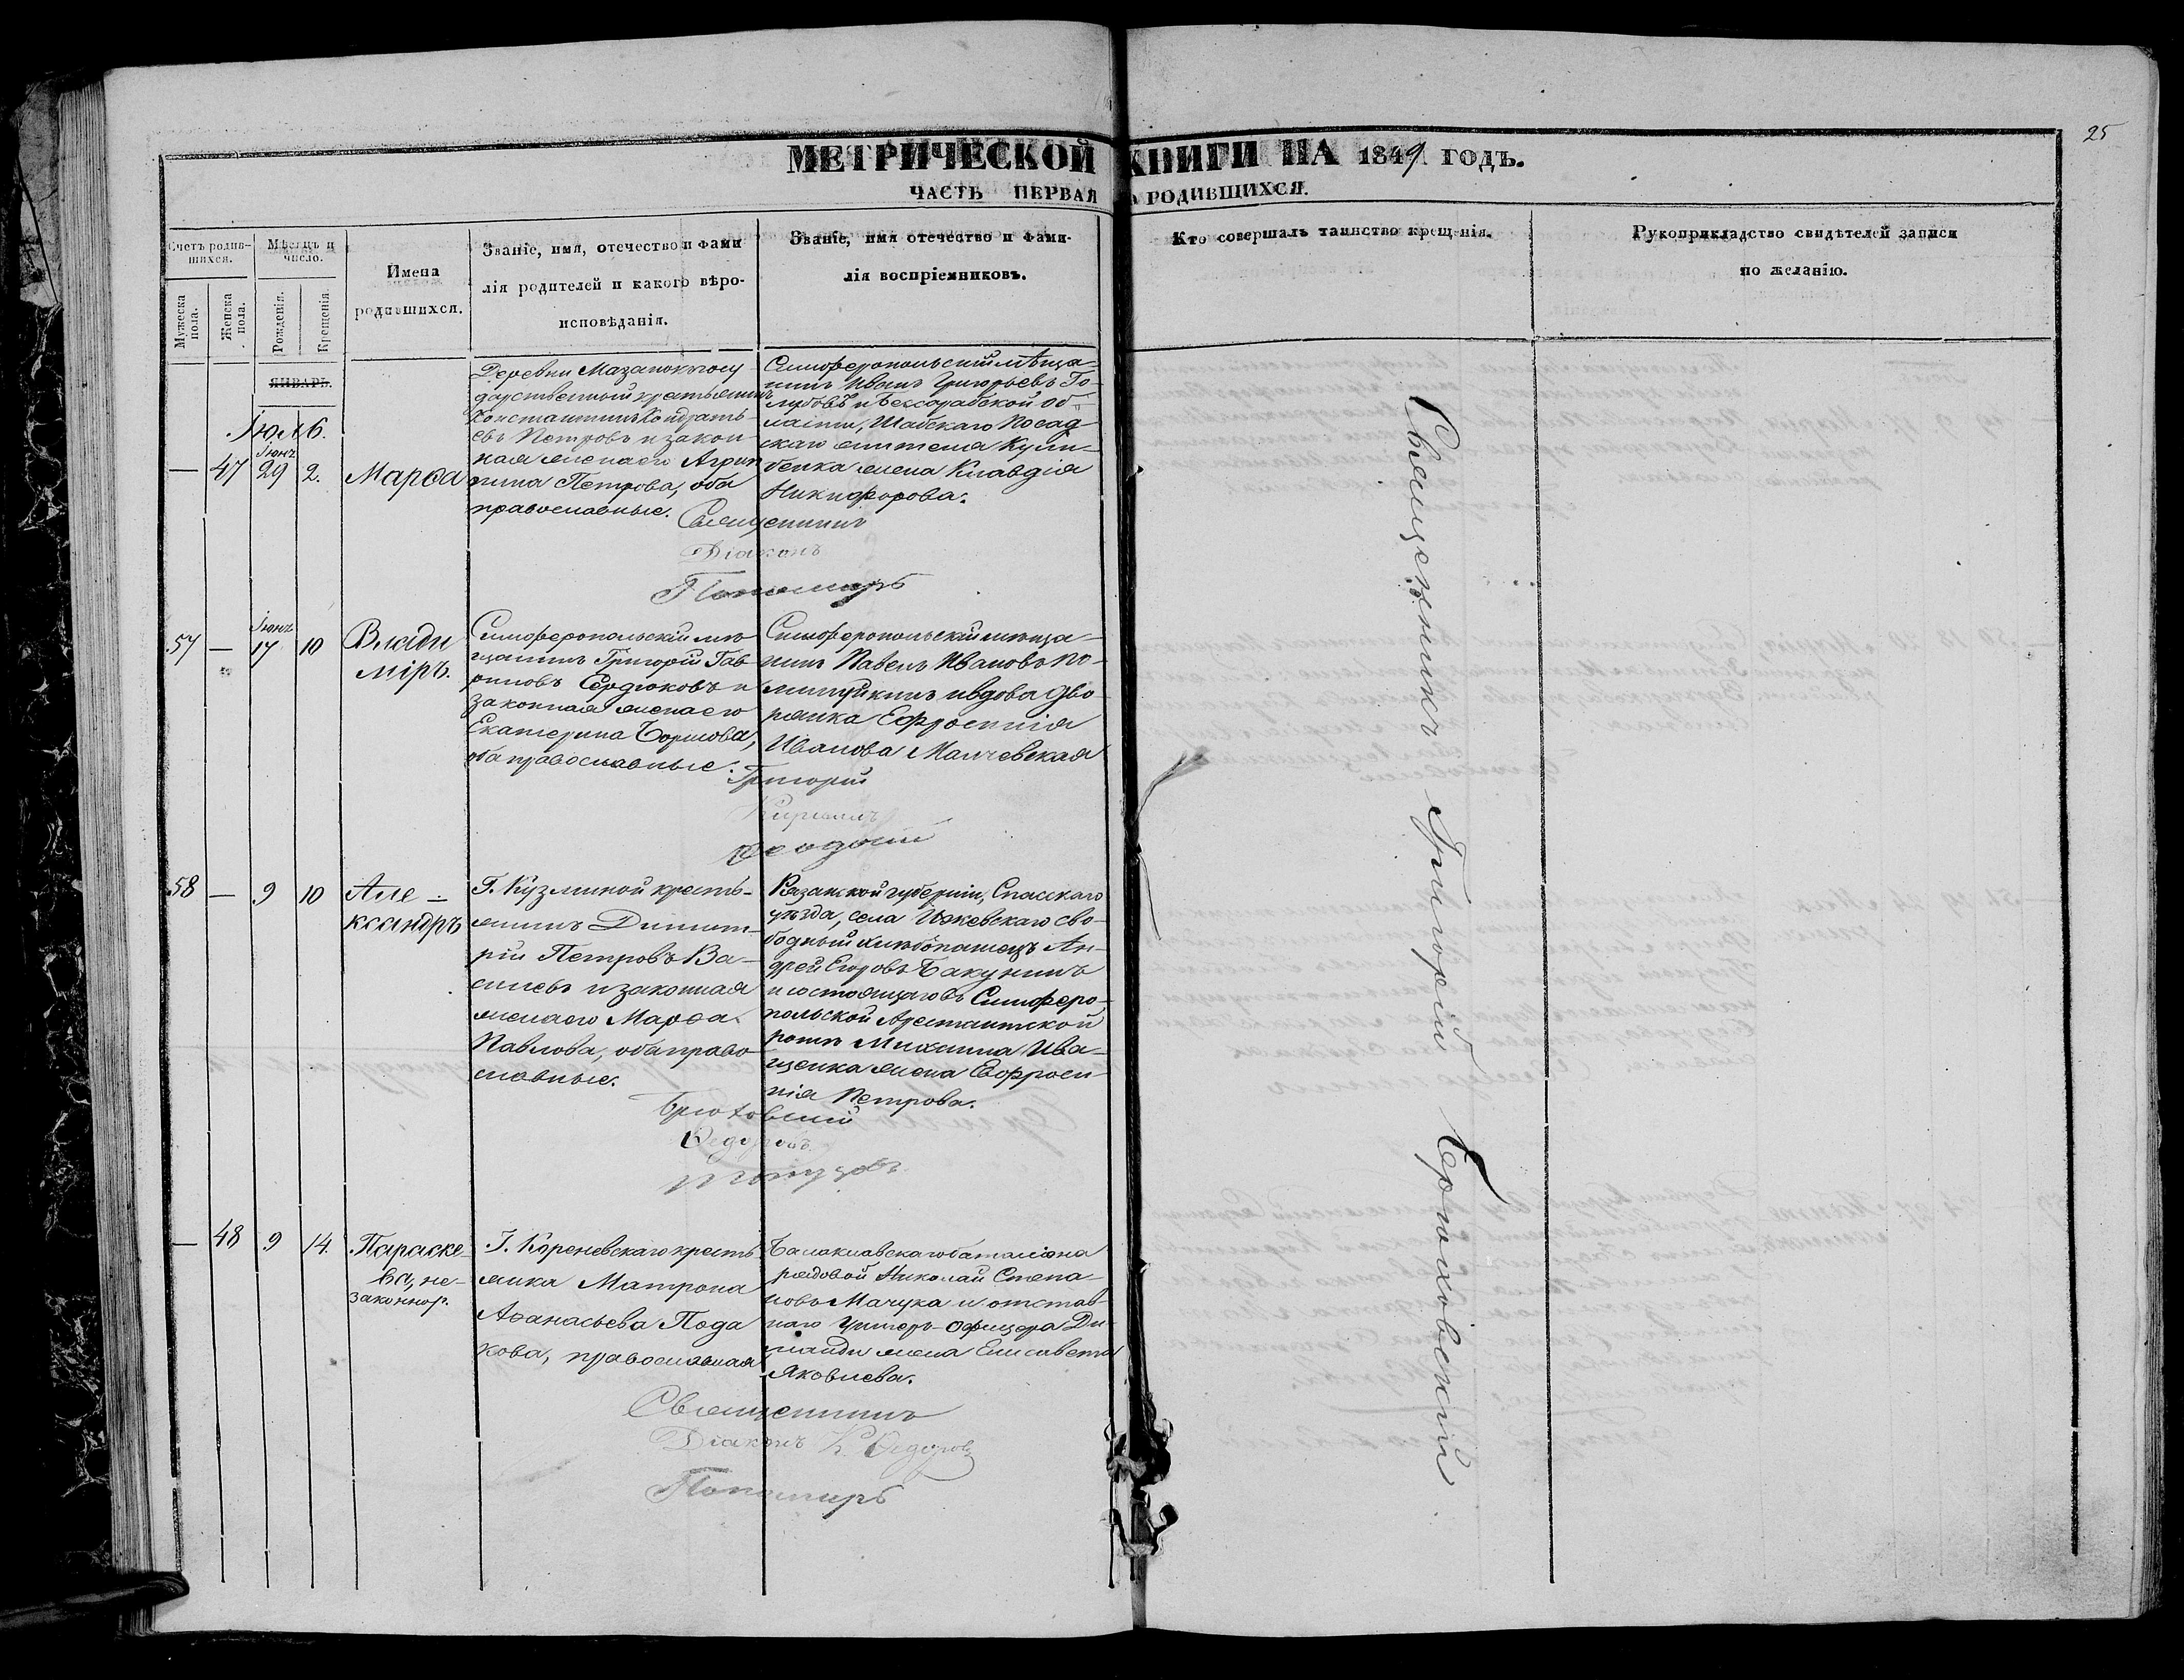 25
МЕТРИЧЕСКОЙ КНИГИ НА 1849 ГОДЪ.
ЧАСТЬ ПЕРВАЯ РОДИВШИХСЯ.
Счетъ родив-
шихся.
Мужеска пола.
Женска пола.
Мѣсяцъ и
число.
Рожденія.
Крещенія.
Имена
родившихся.
Званіе, имя, отечество и фами
лія родителей и какого вѣро-
исповѣданія.
Званіе, имя отечество и фами-
лія воспріемниковъ.
Кто совершалъ таинство крещенія.
Рукоприкладство свидѣтелей записи
по желанію.
ЯНВАРЬ.
Іюль.
— 47 Іюнь 29 2. Марѳа
Деревни Мазанокъ госу
дарственный крестьянинъ
Константинъ Кондрать
евъ Петровъ и закон
ная жена его Агрип
пина Петрова, оба
православные.
Симферопольскій мѣща-
нинъ Иванъ Григорьевъ Го-
лубовъ и Бессарабской об-
ласти, Шабскаго Посад
скаго жителя
жена Клавдія
Никифорова.
Священникъ
Діаконъ
Пономарь
57 — Іюнь 17 10 Влади
міръ.
Симферопольскій мѣ
щанинъ Григорій Гав
риловъ Сердюковъ и
законная жена его
Екатерина Борисова,
оба православные.
Симферопольскій мѣща-
нинъ Павелъ Ивановъ
и вдова дво-
рянка Ефросинія
Иванова Малчевская
Григорій
Кириллъ
Ѳеодосій
58 — 9 10 Але-
ксандръ
Г. Кузминой кресть-
янинъ Димит-
рій Петровъ Ва-
сильевъ и законная
жена его Марѳа
Павлова, оба право
славные.
Рязанской губерніи, Спасскаго
уѣзда, села Ижевскаго сво-
бодный хлѣбопашецъ Ан-
дрей Егоровъ Бакунинъ
и состоящаго въ Симферо-
польской Арестантской
ротѣ Михаила Ива-
щенка жена Евфроси-
нія Петрова.
Ѳедоровъ
— 48 9 14. Параске-
ва, не-
законнор.
Г. Кореневскаго кресть
янка Матрона
Аѳанасьева Пода
кова, православная
Балаклавскаго баталіона
рядовой Николай Степа-
новъ Мачука и отстав-
наго Унтеръ-Офицера
жена Елисавета
Яковлева.
Священникъ
Діаконъ К. Ѳедоровъ
Пономарь
Священникъ Григорій